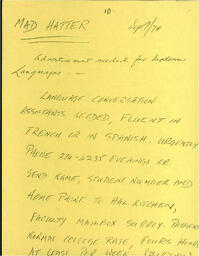 10.
MAD HATTER Sept 9/74
Advertisement needed for Modern
Languages: —
LANGUAGE CONVERSATION
ASSISTANTS NEEDED, FLUENT IN
FRENCH OR IN SPANISH. URGENTLY
PHONE 274-2235 EVENINGS OR
SEND NAME, STUDENT NUMBER AND
HOME PHONE TO HAL KITCHEN,
FACULTY MAILBOX SURREY.
NORMAL COLLEGE RATE, FOUR HOURS
AT LEAST PER WEEK.